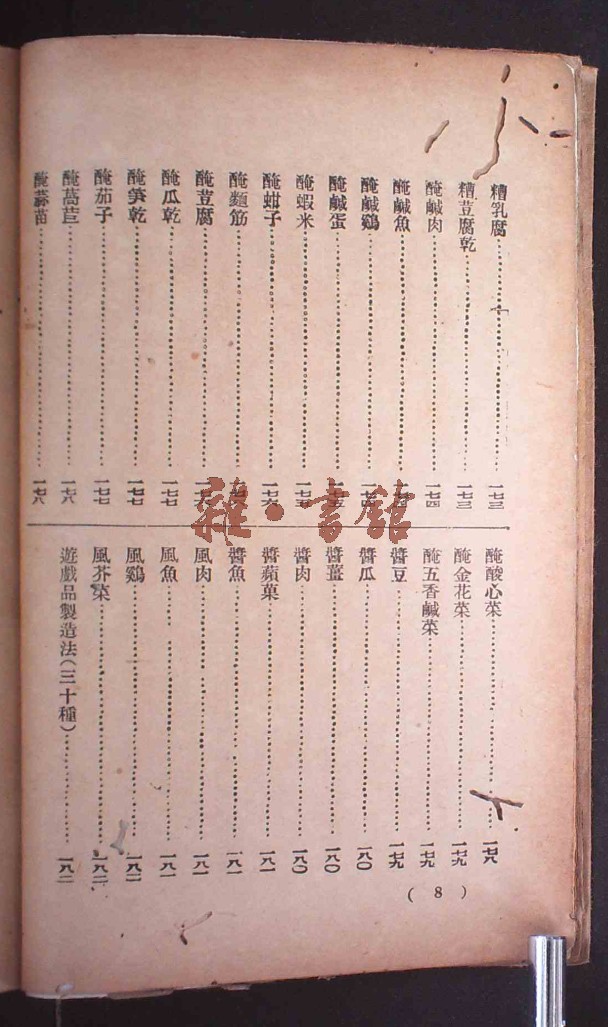 糟乳腐…………一七三
糟荳腐乾…………一七三
醃鹹肉…………一七四
醃鹹魚…………一七四
醃鹹鷄…………一七四
醃鹹蛋…………一七五
醃蝦米…………一七五
醃蚶子…………一七六
醃麵筋…………
醃荳腐…………
醃瓜乾…………一七七
醃笋乾…………一七七
醃茄子…………一七七
醃萵苣…………一七八
醃蒜苗…………一七八
醃酸心菜…………一七八
醃金花菜…………一七九
醃五香鹹菜…………一七九
醬豆…………一七九
醬瓜…………一八〇
醬薑…………一八〇
醬肉…………一八〇
醬蘋菓…………一八一
醬魚…………一八一
風肉…………一八一
風魚…………一八一
風鷄…………一八二
風芥菜…………一八二
遊戲品製造法(三十種)…………一八二
( 8 )
雜·書館